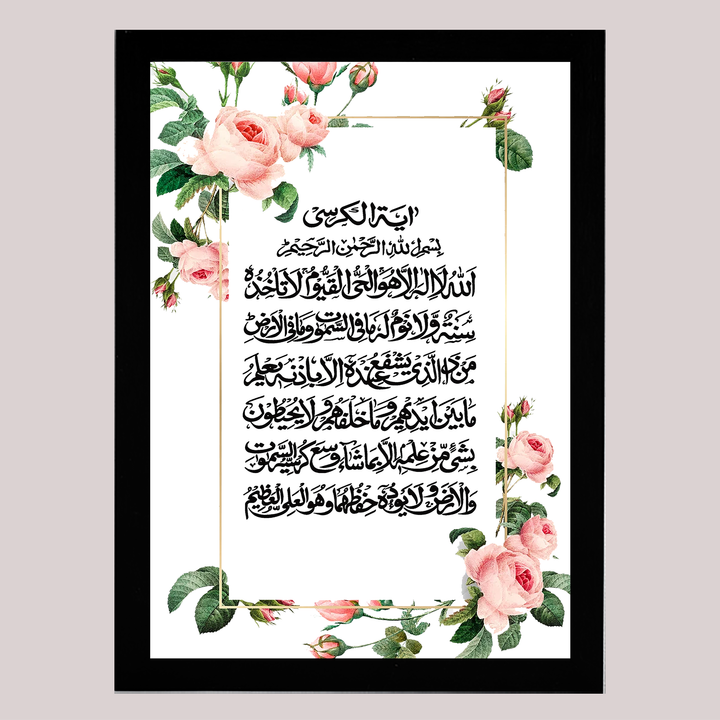 اٰية الكرسى
بِسْمِ اللهِ الرَّحْمٰنِ الرَّحِيْمِ
اَللهُ لَا اِلٰهَ اِلَّا هُوَ الْحَىُّ الْقَيُّوْمُ لَا تَأْخُذُهٗ
سِنَةٌ وَّلَا نَوْمٌ لَهٗ مَا فِى السَّمٰوٰتِ وَمَا فِى الْاَرْضِ
مَنْ ذَا الَّذِىْ يَشْفَعُ عِنْدَهٗ اِلَّا بِاِذْنِهٖ يَعْلَمُ
مَا بَيْنَ اَيْدِيْهِمْ وَمَا خَلْفَهُمْ وَلَا يُحِيْطُوْنَ
بِشَىْءٍ مِّنْ عِلْمِهٖ اِلَّا بِمَا شَآءَ وَسِعَ كُرْسِيُّهُ السَّمٰوٰتِ
وَالْاَرْضَ وَلَا يَـُٔوْدُهٗ حِفْظُهُمَا وَهُوَ الْعَلِىُّ الْعَظِيْمُ